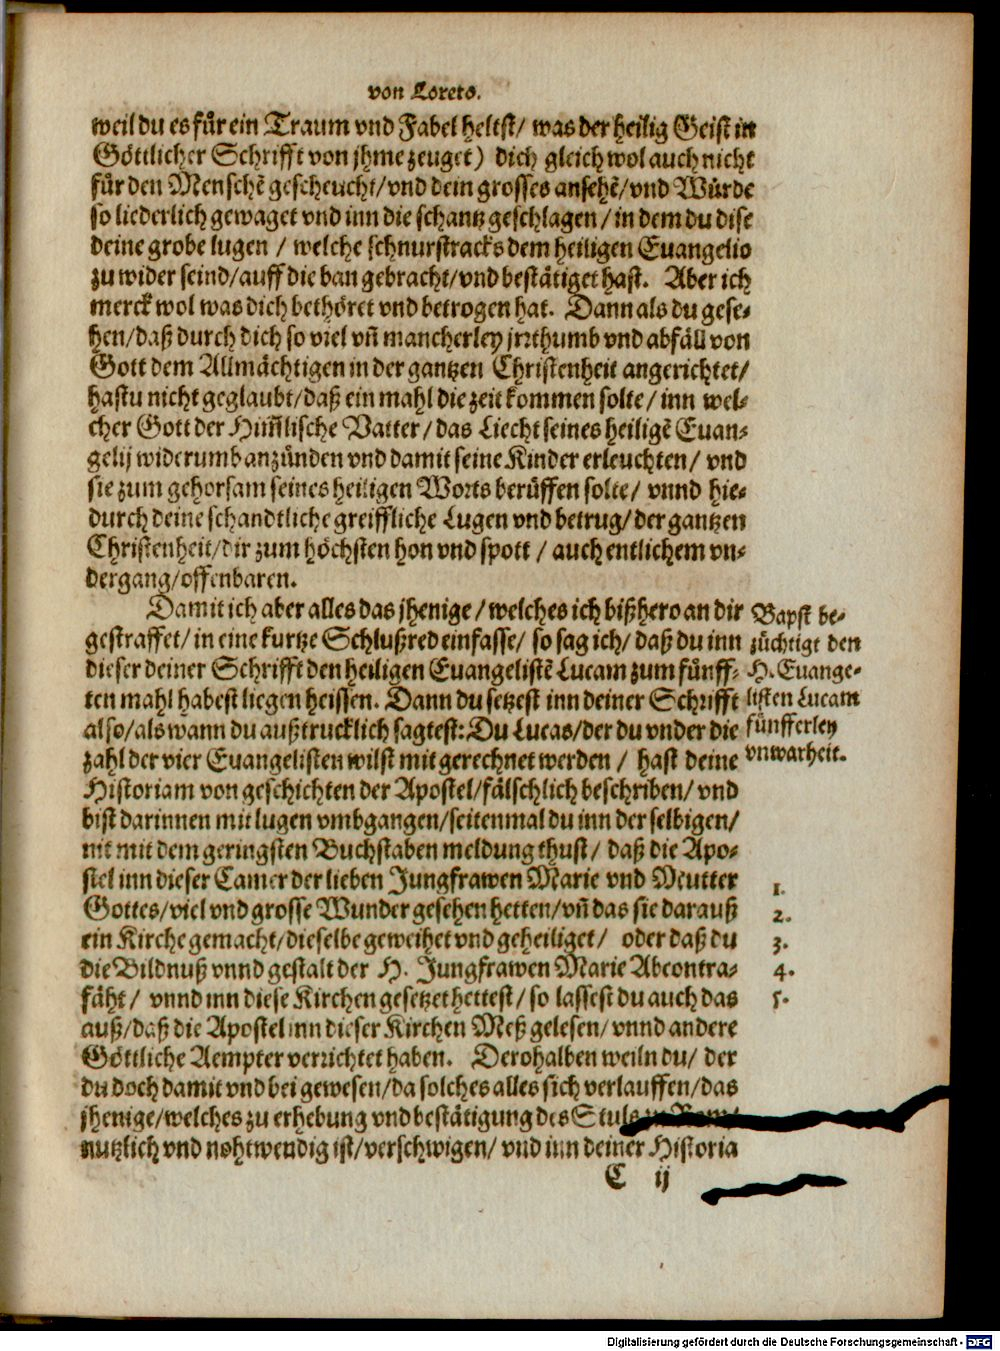 von Loreto.
weil du es für ein Traum vnd Fabel heltst/ was der heilig Geist in
Göttlicher Schrifft von jhme zeuget) dich gleich wol auch nicht
für den Menschẽ gescheucht/vnd dein grosses ansehẽ/vnd Würde
so liederlich gewaget vnd inn die schantz geschlagen/ in dem du dise
deine grobe lugen / welche schnurstracks dem heiligen Euangelio
zu wider seind/auff die ban gebracht/vnd bestätiget hast. Aber ich
merck wol was dich bethöret vnd betrogen hat. Dann als du gese-
hen/daß durch dich so viel vñ mancherley jrrthumb vnd abfäll von
Gott dem Allmächtigen in der gantzen Christenheit angerichtet/
hastu nicht geglaubt/daß ein mahl die zeit kommen solte/ inn wel-
cher Gott der Him̃lische Vatter/das Liecht seines heiligẽ Euan-
gelij widerumb anzünden vnd damit seine Kinder erleuchten/ vnd
sie zum gehorsam seines heiligen Worts berüffen solte/ vnnd hie-
durch deine schandtliche greiffliche Lugen vnd betrug/ der gantzen
Christenheit/dir zum höchsten hon vnd spott / auch entlichem vn-
dergang/offenbaren.
Damit ich aber alles das jhenige/welches ich bißhero an dir
gestraffet/in eine kurtze Schlußred einfasse/ so sag ich/ daß du inn
dieser deiner Schrifft den heiligen Euangelistẽ Lucam zum fünff-
ten mahl habest liegen heissen. Dann du setzest inn deiner Schrifft
also/als wann du außtrucklich sagtest: Du Lucas/der du vnder die
zahl der vier Euangelisten wilst mit gerechnet werden / hast deine
Historiam von geschichten der Apostel/fälschlich beschriben/ vnd
bist darinnen mit lugen vmbgangen/seitenmal du inn der selbigen/
nit mit dem geringsten Buchstaben meldung thust/ daß die Apo-
stel inn dieser Camer der lieben Jungfrawen Marie vnd Mutter
Gottes/viel vnd grosse Wunder gesehen hetten/vñ das sie darauß
ein Kirche gemacht/dieselbe geweihet vnd geheiliget/ oder daß du
die Bildnuß vnnd gestalt der H. Jungfrawen Marie Abcontra-
fäht/ vnnd inn diese Kirchen gesetzet hettest/ so lassest du auch das
auß/daß die Apostel inn dieser Kirchen Meß gelesen/vnnd andere
Göttliche Aempter verrichtet haben. Derohalben weiln du/ der
du doch damit vnd bei gewesen/da solches alles sich verlauffen/das
jhenige/welches zu erhebung vnd bestätigung des Stuls zu Rom/
nutzlich vnd nohtwendig ist/verschwigen/ vnd inn deiner Historia
C ij
Bapst be-
züchtigt den
H. Euange-
listen Lucam
fünfferley
vnwarheit.
1.
2.
3.
4.
5.
Digitalisierung gefördert durch die Deutsche Forschungsgemeinschaft - DFG